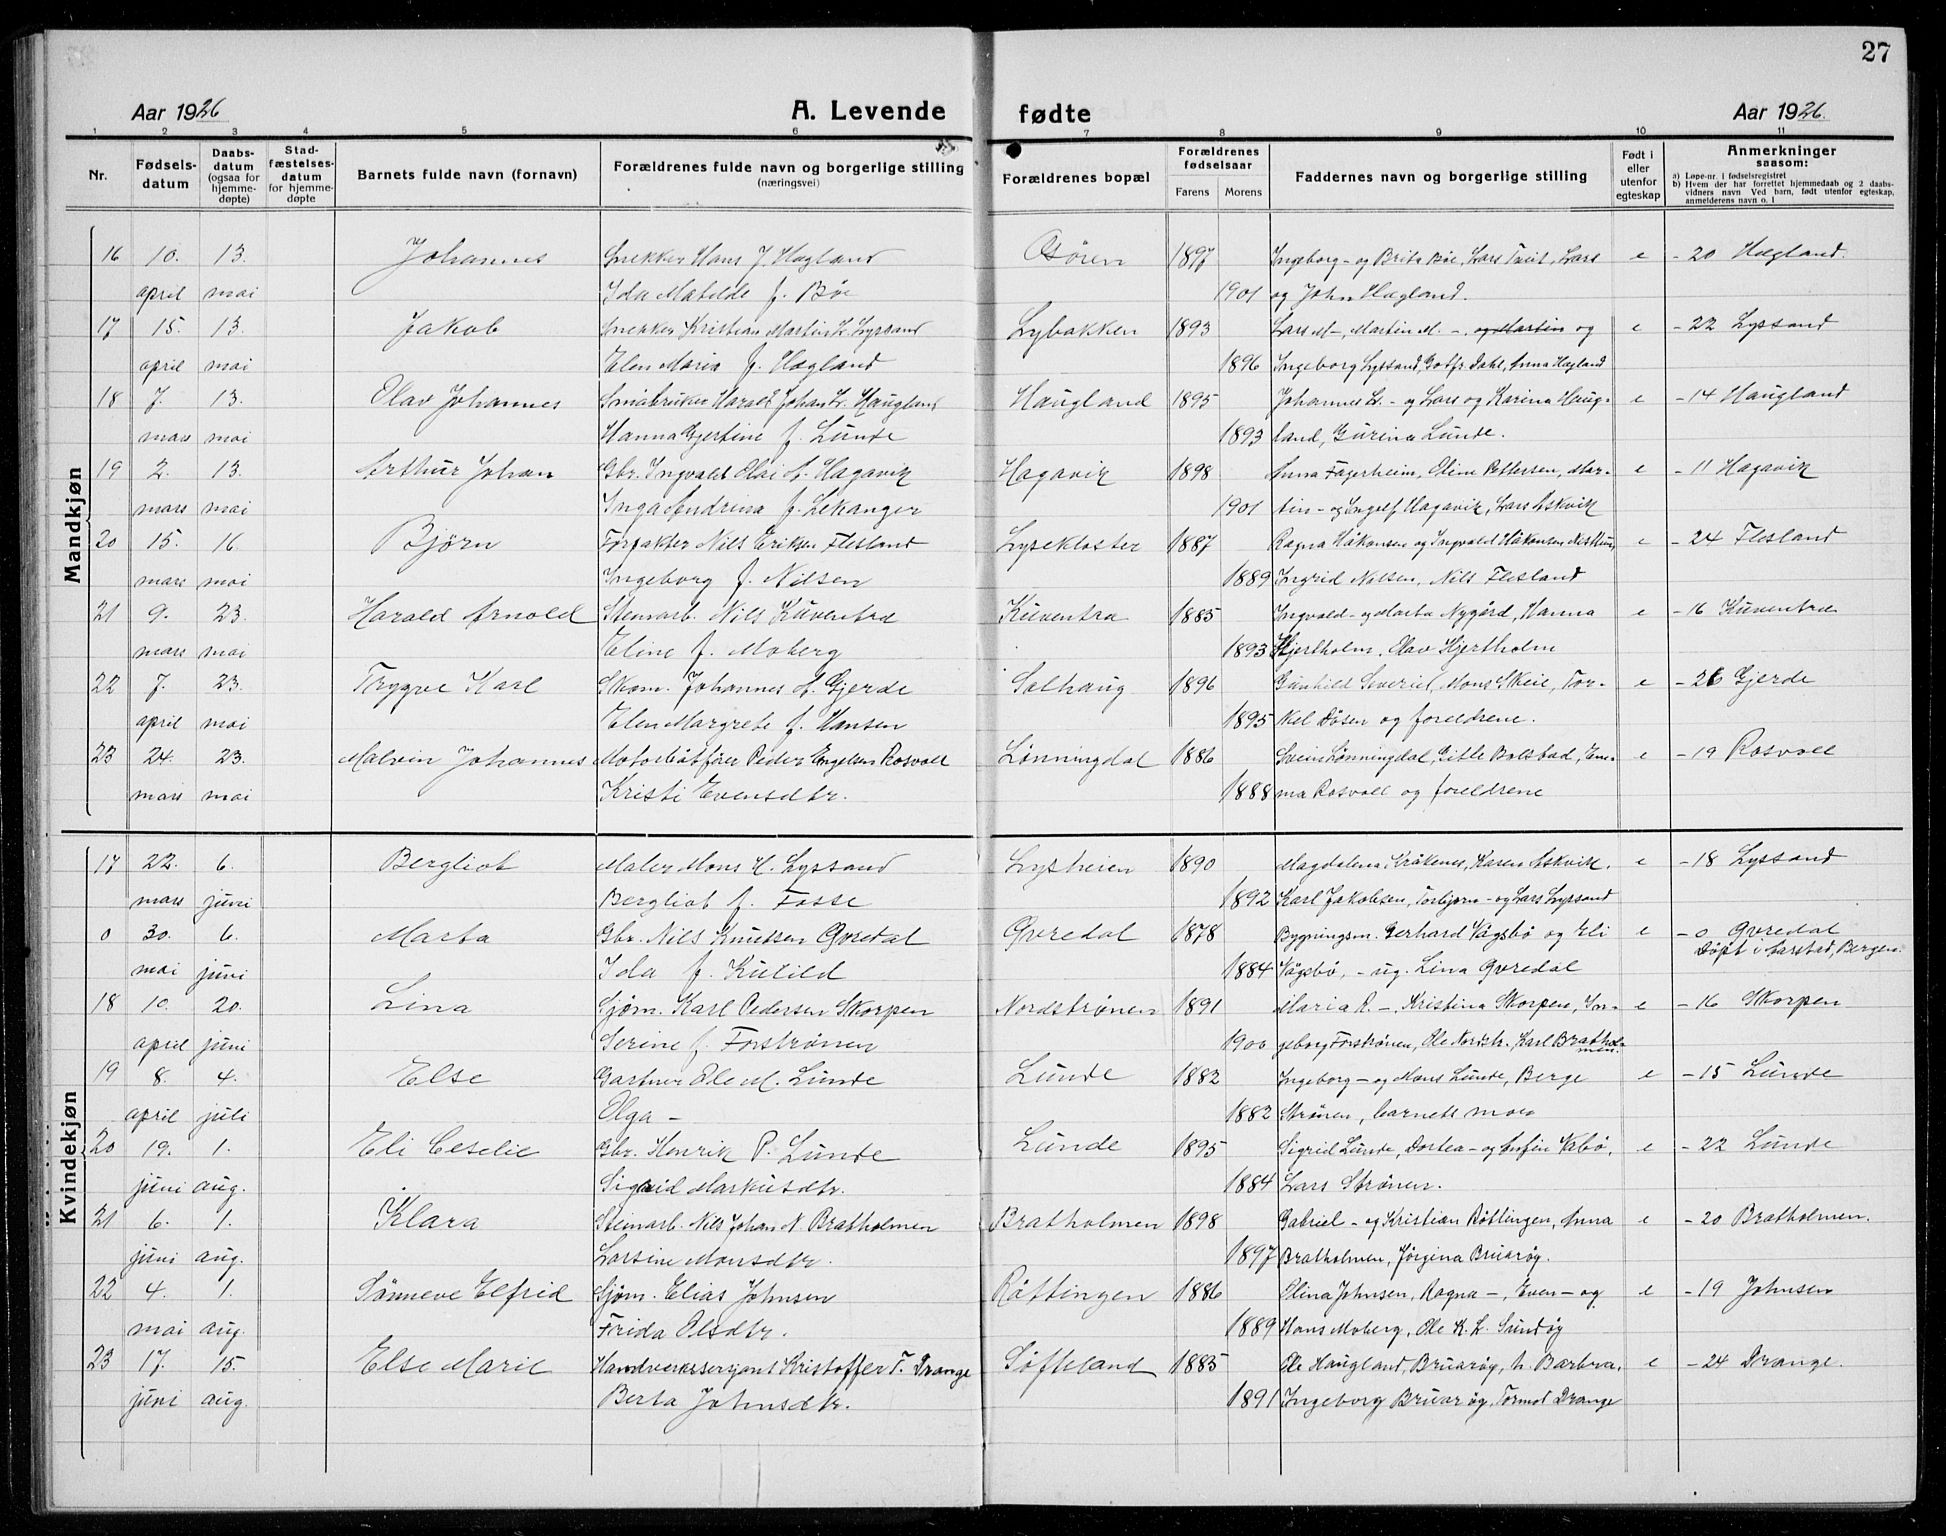 27
Aar 1926
A. Levende
fødte
Aar 1926.
1 2 3 4 5 6 7 8 9 10 11
Nr.
Fødsels-
datum
Daabs-
datum
(ogsaa for
hjemme-
døpte)
Stad-
fæstelses-
datum
for hjemme-
døpte
Barnets fulde navn (fornavn)
Forældrenes fulde navn og borgerlige stilling
(næringsvei)
Forældrenes bopæl
Forældrenes
fødselsaar
Farens Morens
Faddernes navn og borgerlige stilling
Født i
eller
utenfor
egteskap
Anmerkninger
saasom:
a) Løpe-nr. i fødselsregistret
b) Hvem der har forrettet hjemmedaab og 2 daabs-
vidners navn Ved barn, født utenfor egteskap,
anmelderens navn o. l
Mandkjøn
16 10. 13. Johannes Snekker Hans J. Hægland Osøren 1897 Ingeborg - og Brita Bøe, Lars Tveit, Lars e - 20 Hægland.
april mai Ida Matilde f. Bøe 1901 og John Hægland.
17 15. 13. Jakob Snekker Kristian Martin L. Lyssand Lybakken 1893 Lars M-, Martin M. -, og Martin og e - 22 Lyssand
april mai Elen Maria f. Hægland 1896 Ingeborg Lyssand, Gotfr. Dahl, Anna Hægland
18 7. 13. Olav Johannes Småbruker Harald Johan L. Haugland Haugland 1895 Johannes L. - og Lars og Karina Haug- e - 14 Haugland
mars mai Hanna Gjertine f. Lunde 1893 land, Gurina Lunde.
19 2. 13. Arthur Johan Gbr. Ingvald Olai A. Hagavik Hagavik 1898 Anna Fagerheim, Oline Pettersen, Mar- e - 11 Hagavik
mars mai Inga Andrina f. Lekanger 1901 tin - og Ingolf Hagavik, Lars Askvik
20 15. 16. Björn Forpakter Nils Eriksen Flesland Lysekloster 1887 Ragna Håkonsen og Ingvald Håkonsen e - 24 Flesland
mars mai Ingeborg f. Nilsen 1889 Ingrid Nilsen, Nils Flesland
21 9. 23. Harald Arnold Stenarb. Nils Kuventræ Kuventræ 1885 Ingvald - og Marta Nygård, Hanna e - 16 Kuventræ
mars mai Eline f. Moberg 1893 Hjertholm, Olav Hjertholm
22 7. 23. Trygve Karl Skom. Johannes A. Gjerde Solhaug 1896 Gunhild Severi, Mons Skeie, Tor- e - 26 Gjerde
april mai Elen Margrete f. Hansen 1895 kel Døsen og foreldrene.
23 24. 23. Malvin Johannes Motorbåtfører Peder Engelsen Rosvoll Lønningdal 1886 Svein Lønningdal, Gitle Bolstad, Em- e - 19 Rosvoll
mars mai Kristi Evensdtr. 1888 ma Rosvoll og foreldrene
Kvindekjøn
17 22. 6. Bergliot Maler Mons H. Lyssand Lysheien 1890 Magdalena Kråkenes, Karen Askvik. e - 18 Lyssand
mars juni Bergliot f. Fosse 1892 Karl Jakobsen, Torbjørn - og Lars Lyssand
0 30. 6. Marta Gbr. Nils Knutsen Øvredal Øvredal 1878 Bygningsm. Gerhard Vågsbø og Eli e - 0 Øvredal
mai juni Ida f. Kulild 1884 Vågsbø, - ug. Lina Øvredal Döpt i Aarstad, Bergen.
18 10. 20. Lina Sjøm. Karl Pedersen Skorpen Nordstrønen 1891 Maria R. -, Kristina Skorpen, In- e - 16 Skorpen
april juni Serine f. Forstrønen 1900 geborg Forstrønen, Ole Nordstr., Karl Brathol-
men.
19 8. 4. Else Gartner Ole M. Lunde Lunde 1882 Ingeborg - og Mons Lunde, Berge e - 15 Lunde
april juli Olga - 1882 Strønen, barnets mor
20 19. 1. Eli Ceselie Gbr. Henrik P. Lunde Lunde 1895 Sigrid Lunde, Dortea - og Anfin Valbø, e - 22 Lunde
juni aug. Sigrid Markusdtr. 1884 Lars Strønen.
21 6. 1. Klara Steinarb. Nils Johan N. Bratholmen Bratholmen 1898 Gabriel - og Kristian Røttingen, Anna e - 20 Bratholmen.
juni aug. Larsine Monsdtr. 1897 Bratholmen, Jørgina Bruarøy.
22 4. 1. Sønneve Elfrid Sjøm. Elias Johnsen Røttingen 1886 Olina Johnsen, Ragna -, Even - og e - 19 Johnsen
mai aug. Frida Olsdtr. 1889 Hans Moberg, Ole K. L. Sundøy
23 17. 15. Else Marie Handverkssersjant Kristoffer T. Drange Søfteland 1885 Ole Haugland, Bruarøy, h. Barbra, e - 24 Drange.
juni aug. Berta Johnsdtr. 1891 Ingeborg Bruarøy, Tormod Drange